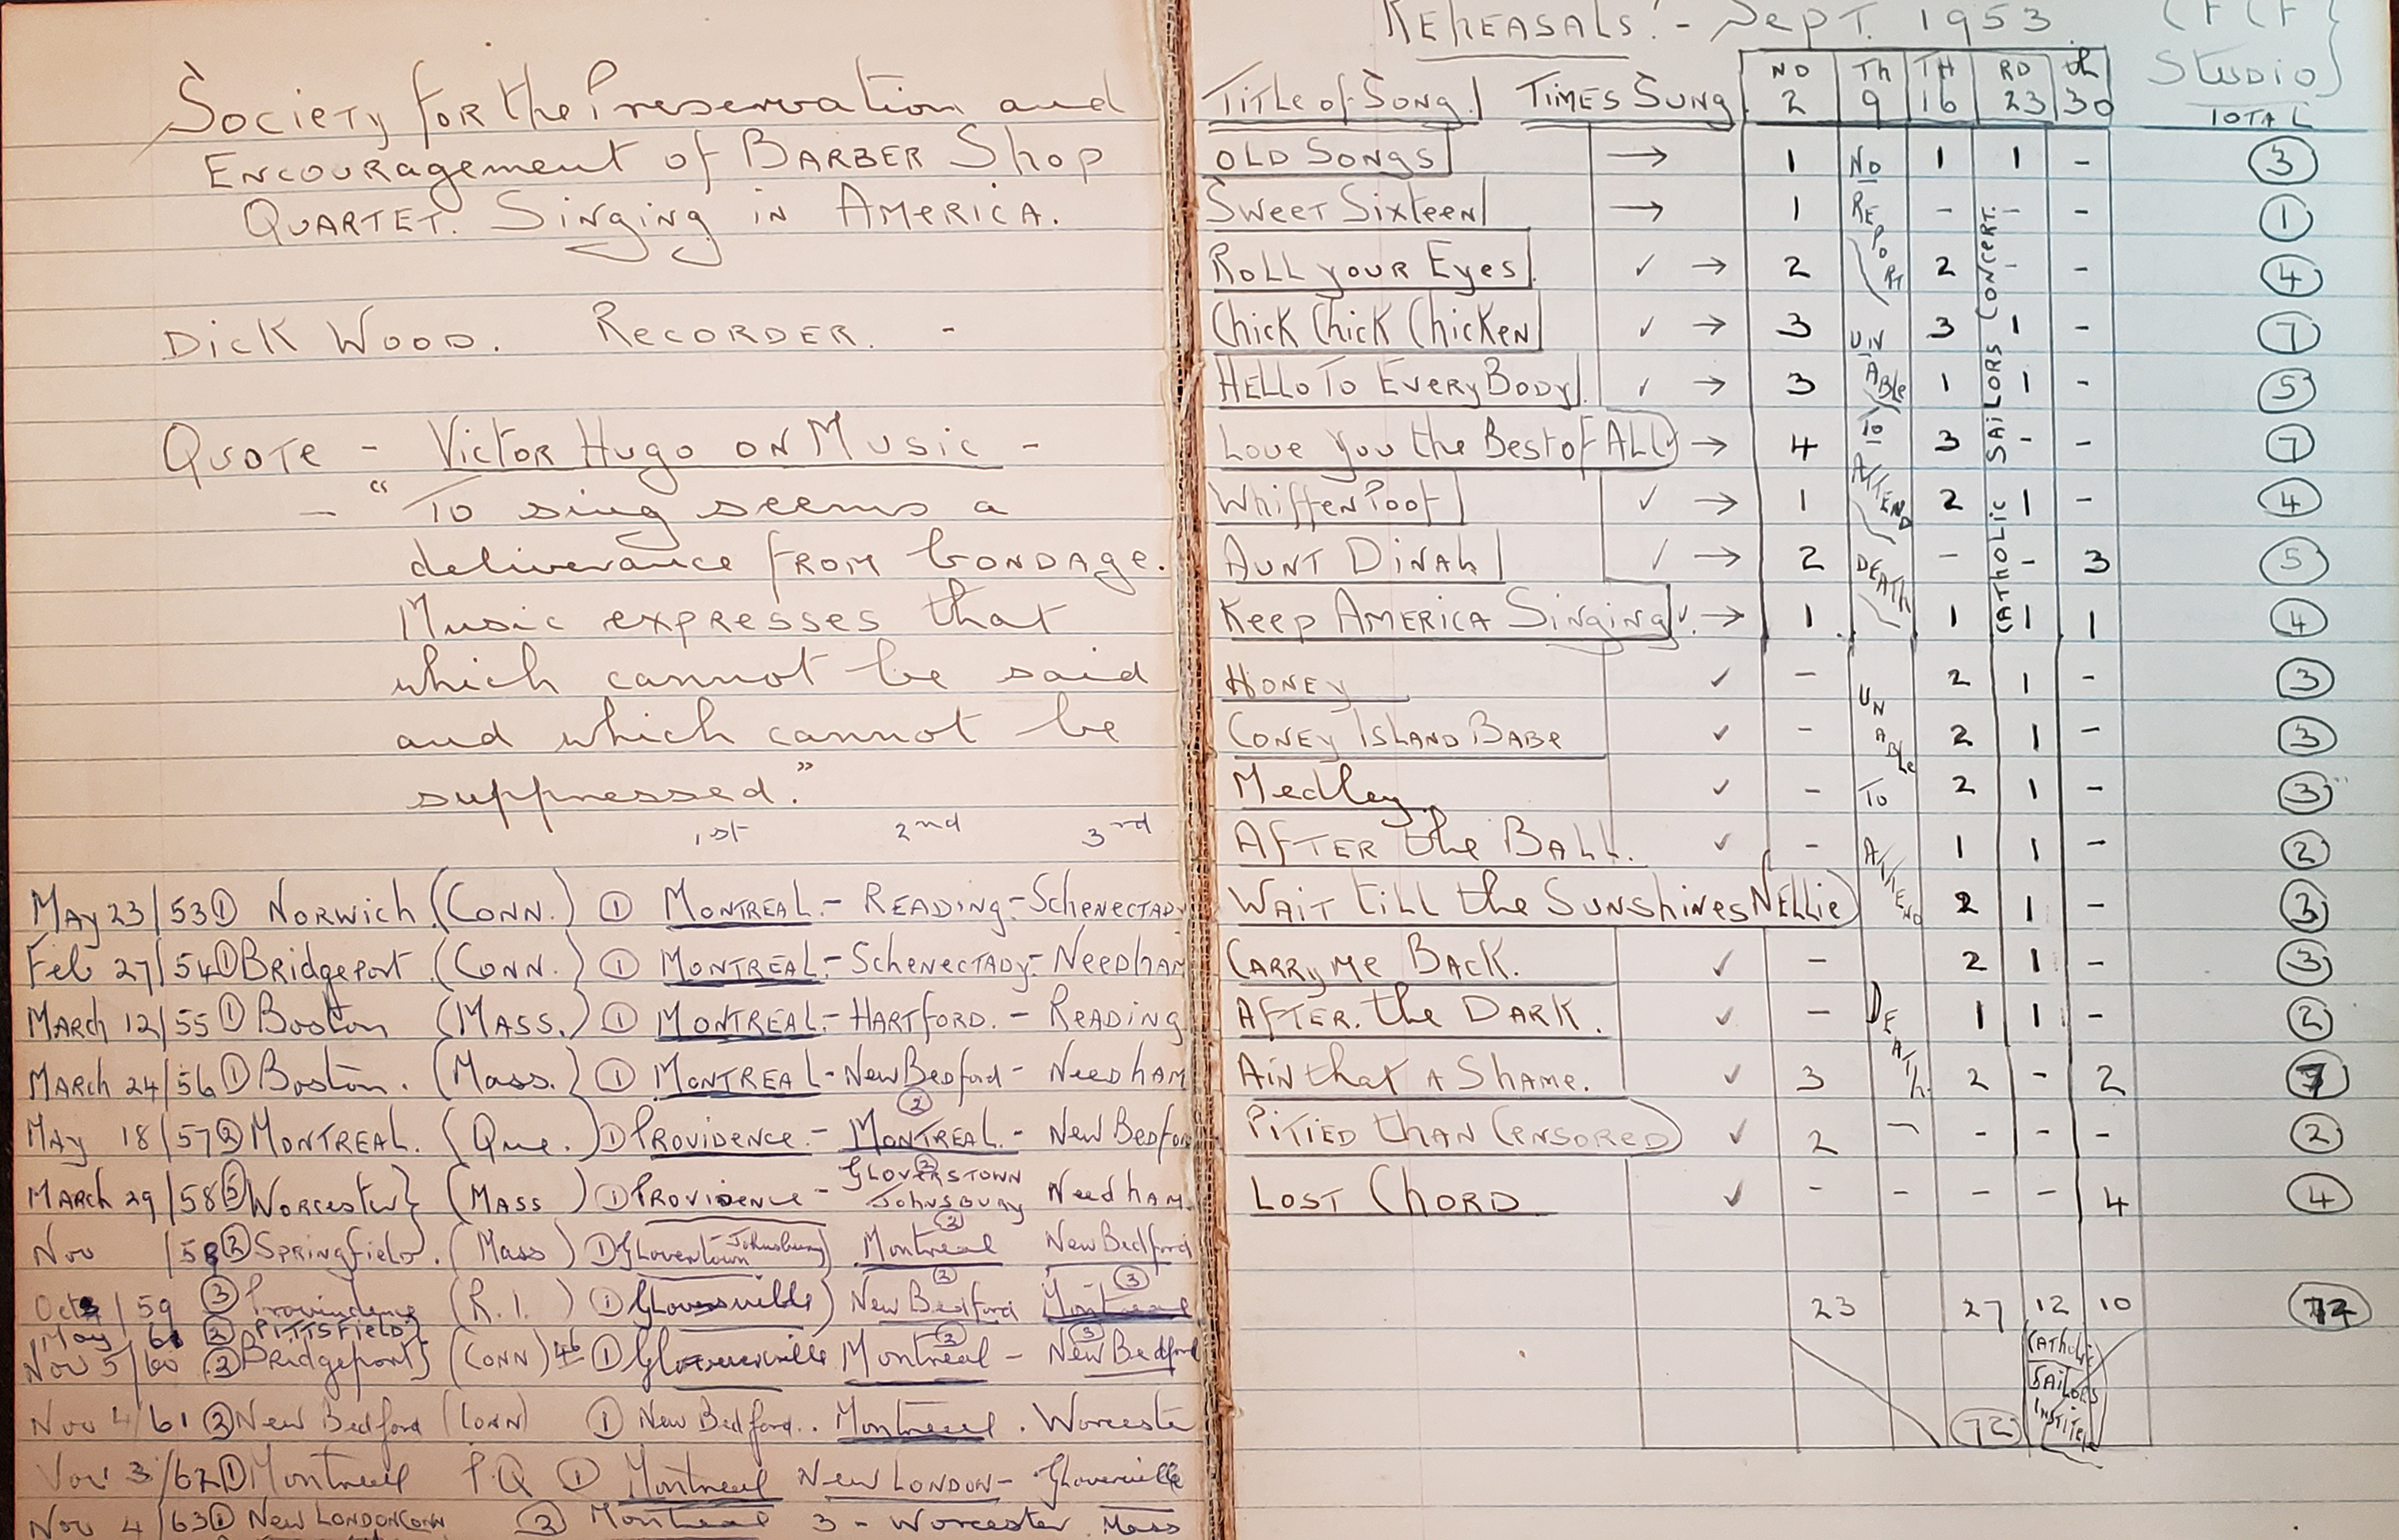 Society for the Preservation and
Encouragement of Barber Shop
Quartet. Singing in America.
Dick Wood. Recorder. -
Quote - Victor Hugo on Music -
- "To sing seems a
deliverance from bondage.
Music expresses that
which cannot be said
and which cannot be
suppressed."
1st 2nd 3rd
May 23/53 ① Norwich (Conn.) ① Montreal - Reading - Schenectady
Feb 27/54 ① Bridgeport (Conn.) ① Montreal - Schenectady - Needham
March 12/55 ① Boston (Mass.) ① Montreal - Hartford. - Reading
March 24/56 ① Boston. (Mass.) ① Montreal - New Bedford - Needham
May 18/57 ② Montreal. (Que.) ① Providence - ② Montreal. - New Bedford
March 29/58 ⑤ Worcester} (Mass) ① Providence - ② Gloverstown Johnsbury Needham
Nov /58 ② Springfield. (Mass) ① Glovertown Johnsbury) ② Montreal New Bedford
Oct /59 ③ Providence (R.I.) ① Gloversville) ② New Bedford - ③ Montreal
May 6 ② Pittsfield}
Nov 5/60 ② Bridgeport} (Conn) ① Gloversville ② Montreal - ③ New Bedford
Nov 4/61 ② New Bedford (Conn) ① New Bedford.. Montreal. Worcester
Nov 3/62 ① Montreal P.Q ① Montreal New London - Gloversville
Nov 4/63 ① New London Conn ② Montreal 3 - Worcester Mass
Reheasals! - Sept. 1953 (FCF Studio)
Title of Song. Times Sung. ND 2 Th 9 TH 16 RD 23 th 30 Total
Old Songs → 1 1 1 - ③
Sweet Sixteen → 1 - - - ①
Roll your Eyes ✓ → 2 2 - - ④
Chick Chick Chicken ✓ → 3 3 1 - ⑦
Hello To EveryBody ✓ → 3 1 1 - ⑤
Love You the Best of All ✓ → 4 3 - - ⑦
Whiffenpoof ✓ → 1 2 1 - ④
Aunt Dinah ✓ → 2 - - 3 ⑤
Keep America Singing ✓ → 1 1 1 1 ④
Honey ✓ - 2 1 - ③
Coney Island Babe ✓ - 2 1 - ③
Medley. ✓ - 2 1 - ③
After the Ball. ✓ - 1 1 - ②
Wait till the Sunshines Nellie 2 1 - ③
Carry me Back. ✓ - 2 1 - ③
After. the Dark. ✓ - 1 1 - ②
Ain that a Shame. ✓ 3 2 - 2 ⑦
Pitied than Censored ✓ 2 - - - - ②
Lost Chord ✓ - - - - 4 ④
No Report Unable To Attend Death
Unable To Attend Death.
Catholic Sailors Concert.
23 27 12 10 72
72
Catholic
Sailors
Institute